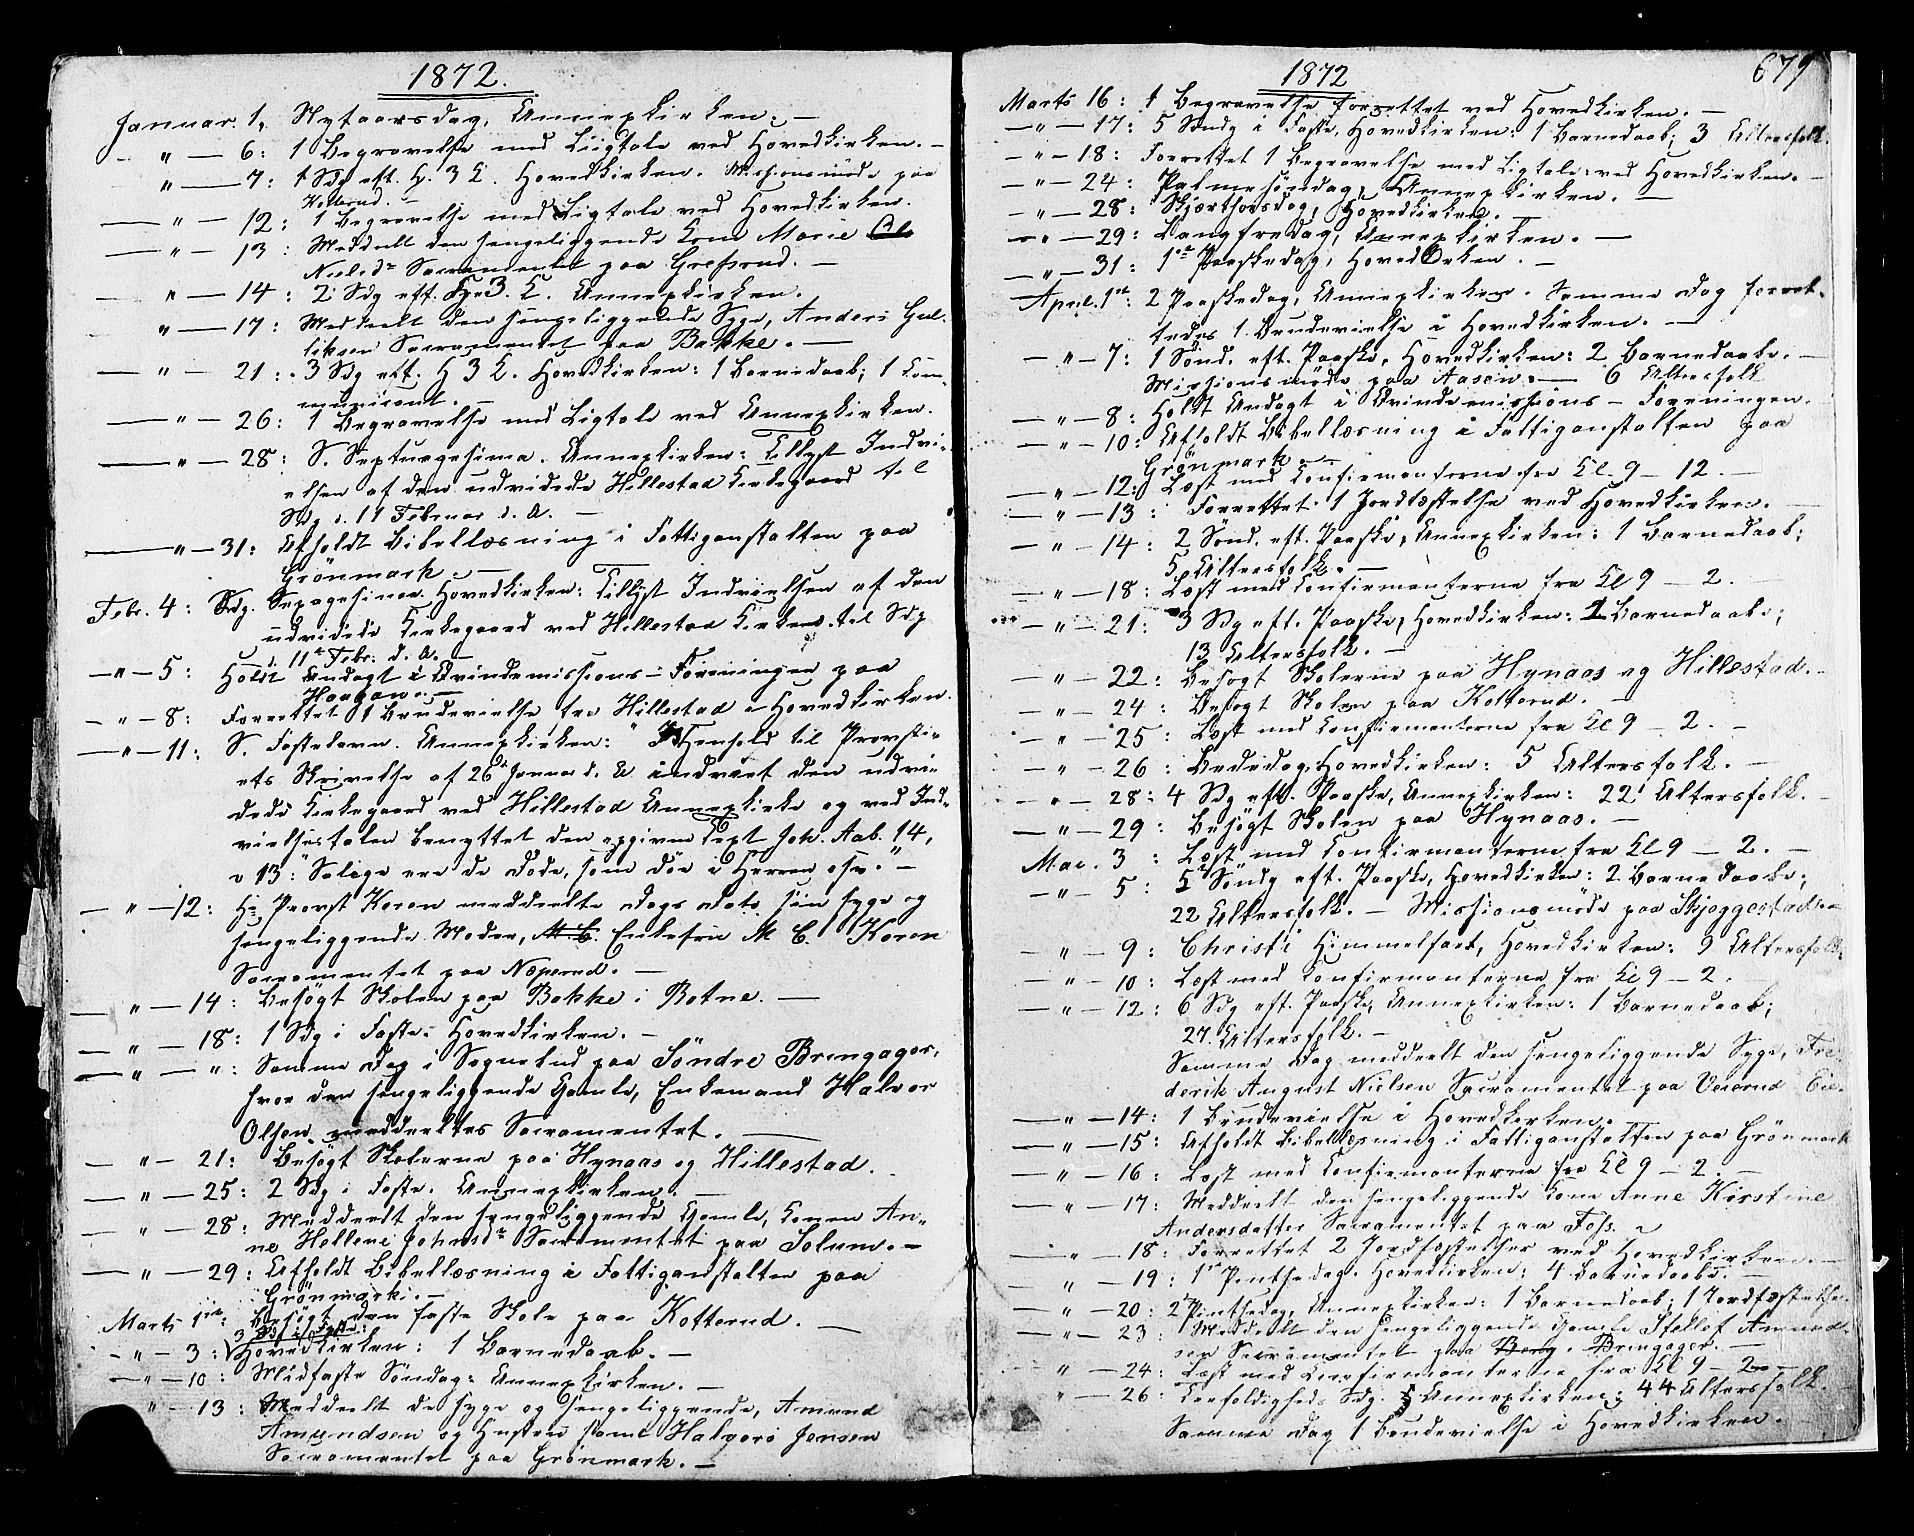 1872.
Januar. 1, Nytaarsdag, Annexkirken. —
— " — 6: 1 Begravelse med Liigtale ved Hovedkirken. —
" — 7: 1 Sdg eft. H. 3 K. Hovedkirken. Missionsmöde paa
Kotterud. —
— " — 12: 1 Begravelse med Ligtale ved Hovedkirken.
— " — 13: Meddelt den sengeliggende Kone Marie
Nielsdr Sacramentet paa Grefsrud. —
— " — 14: 2 Sdg eft. H. 3. K. Annexkirken.
" — 17: Meddeelt den sengeliggende Syge, Anders Gul-
liksen Sacramentet paa Bakke. —
— " — 21: 3 Sdg eft. H 3 K. Hovedkirken: 1 Barnedaab; 1 Com-
municant. —
— " — 26: 1 Begravelse med Ligtale ved Annexkirken.
— " — 28: S. Septuagesima. Annexkirken: Tillyst Indvi-
elsen af den udvidede Hillestad Kirkegaard til
Sdg d. 11 Februar d. A. —
— " — 31: Afholdt Bibellæsning i Fattiganstalten paa
Grönmark. —
Febr. 4: Sdg. Sexagesima. Hovedkirken: Tillyst Indvielsen af den
udvidede Kirkegaard ved Hillestad Kirken til Sdg
d. 11te Febr. d. A. —
— " — 5: Holdt Andagt i Qvindemissions-Foreningen paa
Haagan. —
— " — 8: Forrettet 1 Brudevielse fra Hillestad i Hovedkirken.
— " — 11: S. Fastelavn. Annexkirken: I Henhold til Provsti-
ets Skrivelse af 26d Januar d. A. indviet den udvi-
dede Kirkegaard ved Hillestad Annexkirke og ved Ind-
vielsestalen benyttet den opgivne Text Joh. Aab. 14,
v 13: "Salige ere de Døde, som döe i Herren osv." —
— " — 12: Hr Provst Koren meddeelte Dags Dato sin syge og
sengeliggende Moder, M. C. Enkefru M C. Koren
Sacramentet paa Næperud. —
— " — 14: Besögt Skolen paa Bakke i Botne. —
— " — 18: 1 Sdg i Faste. Hovedkirken. —
— " — ": Samme Dag i Sognebud paa Söndre Bringager,
hvor den sengeliggende Gamle, Enkemand Halvor
Olsen meddeeltes Sacramentet. —
— " — 21: Besögt Skolerne paa Hynaas og Hillestad.
— " — 25: 2 Sdg i Faste. Annexkirken. —
— " — 28: Meddeelt den sengeliggende Gamle, Konen An-
ne Hellene Johnsdr Sacramentet paa Solum. —
— " — 29: Afholdt Bibellæsning i Fattiganstalten paa
Grönmark. —
Marts 1ste: Besögt den faste Skole paa Kotterud. —
3 Sdg i Faste:
— " — 3: Hovedkirken: 1 Barnedaab. —
— " — 10: Midfaste Söndag: Annexkirken. —
" — 13: Meddeelt de syge og sengeliggende, Amund
Amundsen og Hustru samt Halvor Jensen
Sacramentet paa Grönmark. —
1872
679
Marts 16: 1 Begravelse forrettet ved Hovedkirken. —
— " — 17: 5 Söndg i Faste, Hovedkirken: 1 Barnedaab; 3 Altersfolk.
— " — 18: Forrettet 1 Begravelse med Ligtale ved Hovedkirken. —
— " — 24: Palmesöndag, Annexkirken. —
— " — 28: Skjærthorsdag, Hovedkirken. —
— " — 29: Langfredag, Annexkirken. —
— " — 31: 1ste Paaskedag, Hovedkirken. —
April. 1ste: 2 Paaskedag, Annexkirken. Samme Dag forret-
tedes 1 Brudevielse i Hovedkirken. —
— " — 7: 1 Sönd. eft. Paaske, Hovedkirken: 2 Barnedaabe. —
Missionsmöde paa Aasen. — 6 Altersfolk
— " — 8: Holdt Andagt i Qvindemissions-Foreningen.
— " — 10: Afholdt Bibellæsning i Fattiganstalten paa
Grönmark. —
— " — 12: Læst med Confirmanterne fra Kl. 9 — 12. —
— " — 13: Forrettet 1 Jordfæstelse ved Hovedkirken. —
— " — 14: 2 Sönd. eft. Paaske, Annexkirken: 1 Barnedaab;
5 Altersfolk. —
— " — 18: Læst med Confirmanterne fra Kl 9 — 2. —
— " — 21: 3 Sdg eft. Paaske, Hovedkirken: 2 Barnedaabe;
13 Altersfolk. —
— " — 22: Besögt Skolerne paa Hynaas og Hillestad. —
— " — 24: Besögt Skolen paa Kotterud. —
— " — 25: Læst med Confirmanterne fra Kl 9 — 2. —
— " — 26: Bededag, Hovedkirken: 5 Altersfolk. —
— " — 28: 4 Sdg eft. Paaske, Annexkirken: 22 Altersfolk. —
— " — 29: Besögt Skolen paa Hynaas. —
Mai. 3: Læst med Confirmanterne fra Kl 9 — 2. —
— " — 5: 5 Söndg eft. Paaske, Hovedkirken: 2 Barnedaabe;
22 Altersfolk. — Missionsmöde paa Skjeggestad. —
— " — 9: Christi Himmelfart, Hovedkirken: 9 Altersfolk.
— " — 10: Læst med Confirmanterne fra Kl 9 — 2. —
— " — 12: 6 Sdg eft. Paaske, Annexkirken: 1 Barnedaab;
27 Altersfolk. —
Samme Dag meddeelt den sengeliggende Syge, Fre-
derik August Nielsen Sacramentet paa
— " — 14: 1 Brudevielse i Hovedkirken. —
— " — 15: Afholdt Bibellæsning i Fattiganstalten paa Grönmark
— " — 16: Læst med Confirmanterne fra Kl 9 — 2. —
" — 17: Meddeelt den sengeliggende Kone Anne Kirstine
Andersdatter Sacramentet paa Fofs. —
— " — 18: Forrettet 2 Jordfæstelser ved Hovedkirken. —
" — 19: 1ste Pintsedag. Hovedkirken: 4 Barnedaabe. —
— " — 20: 2 Pintsedag, Annexkirken: 1 Barnedaab; 1 Jordfæstelse.
— " — 23: Meddeelt den sengeliggende Gamle Stellef Amund-
sen Sacramentet paa Berg. Bringager. —
" — 24: Læst med Confirmanterne fra Kl 9 — 2 —
" — 26: Treefoldigheds Sdg. Annexkirken: 44 Altersfolk.
Samme Dag 1 Brudevielse i Hovedkirken.